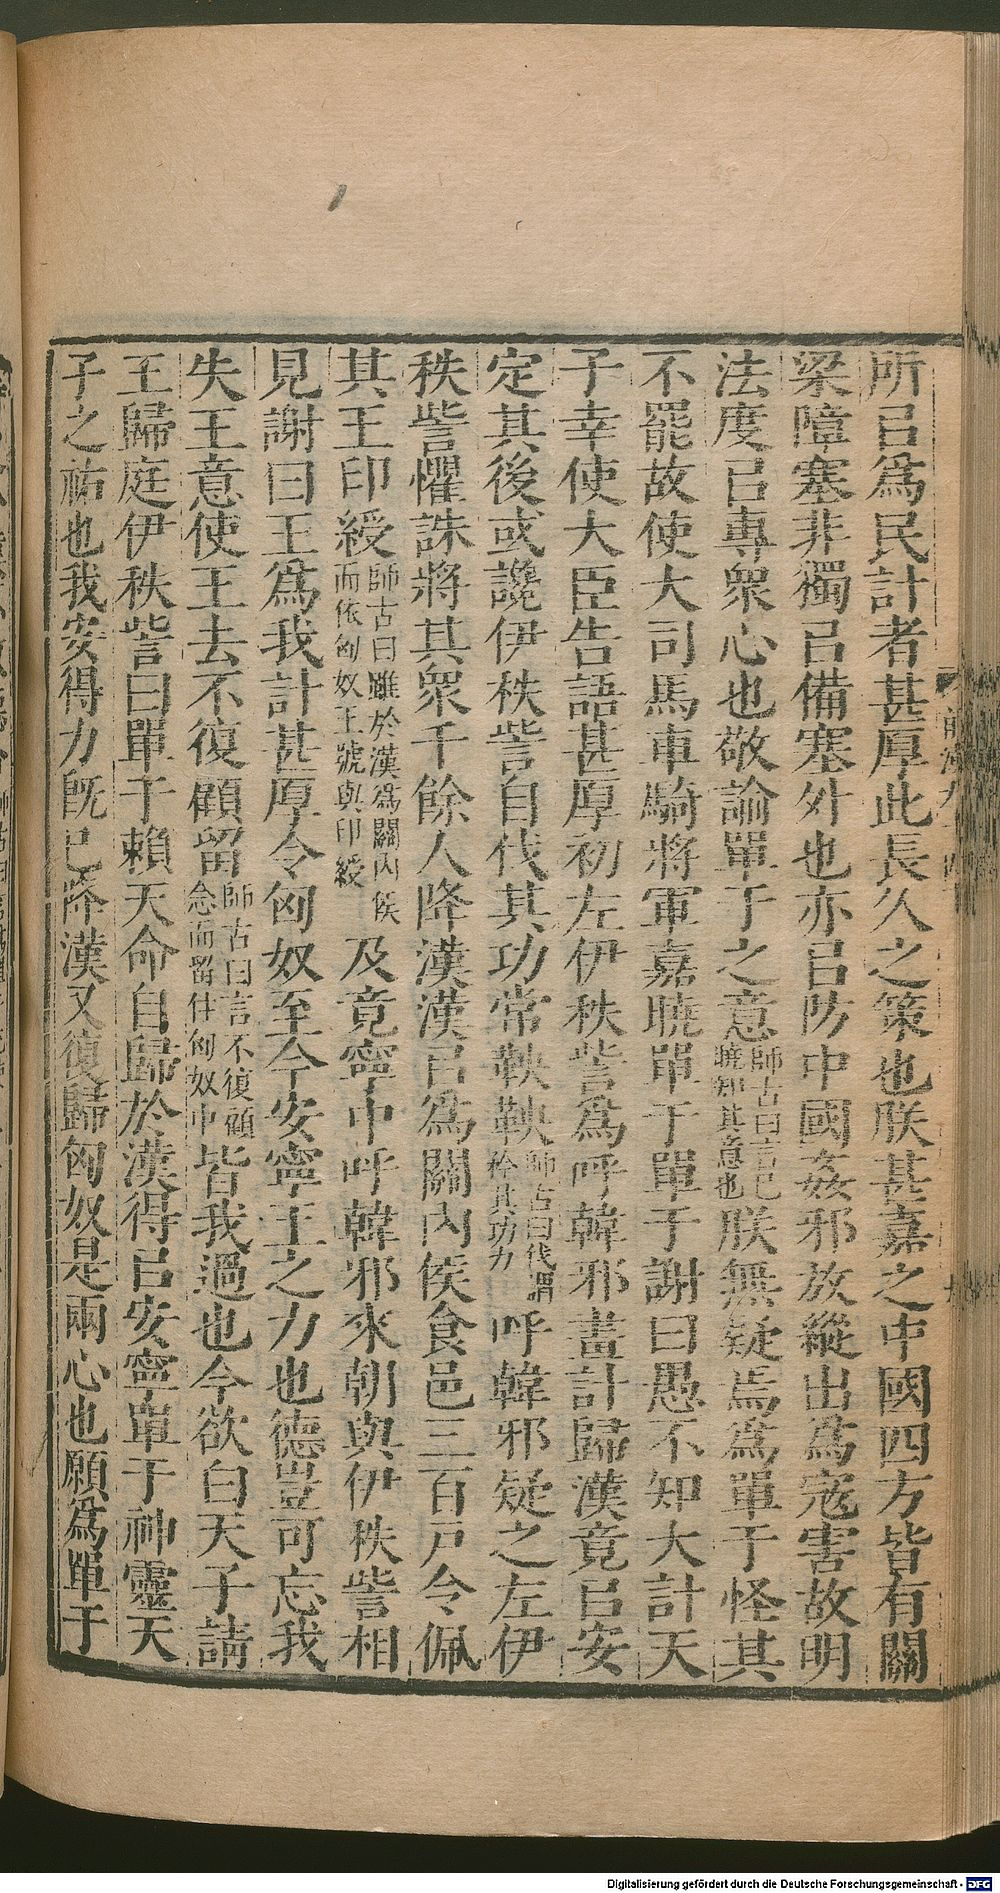 所㠯爲民計者甚厚此長久之策也朕甚嘉之中國四方皆有關
梁障塞非獨㠯備塞外也亦㠯防中國姦邪放縱出爲寇害故明
法度㠯專衆心也敬諭單于之意師古曰言已曉知其意也朕無疑焉爲單于怪其
不罷故使大司馬車騎將軍嘉曉單于單于謝曰愚不知大計天
子幸使大臣告語甚厚初左伊秩訾爲呼韓邪畫計歸漢竟㠯安
定其後或讒伊秩訾自伐其功常鞅鞅師古曰伐謂矜其功力呼韓邪疑之左伊
秩訾懼誅將其衆千餘人降漢漢㠯爲關內侯食邑三百戶令佩
其王印綬師古曰雖於漢爲關內侯而依匈奴王號與印綬及竟寧中呼韓邪來朝與伊秩訾相
見謝曰王爲我計甚厚令匈奴至今安寧王之力也德豈可忘我
失王意使王去不復顧留師古曰言不復顧念而留住匈奴中皆我過也今欲白天子請
王歸庭伊秩訾曰單于賴天命自歸於漢得㠯安寧單于神靈天
子之祐也我安得力旣已降漢又復歸匈奴是兩心也願爲單于
Digitalisierung gefördert durch die Deutsche Forschungsgemeinschaft - DFG